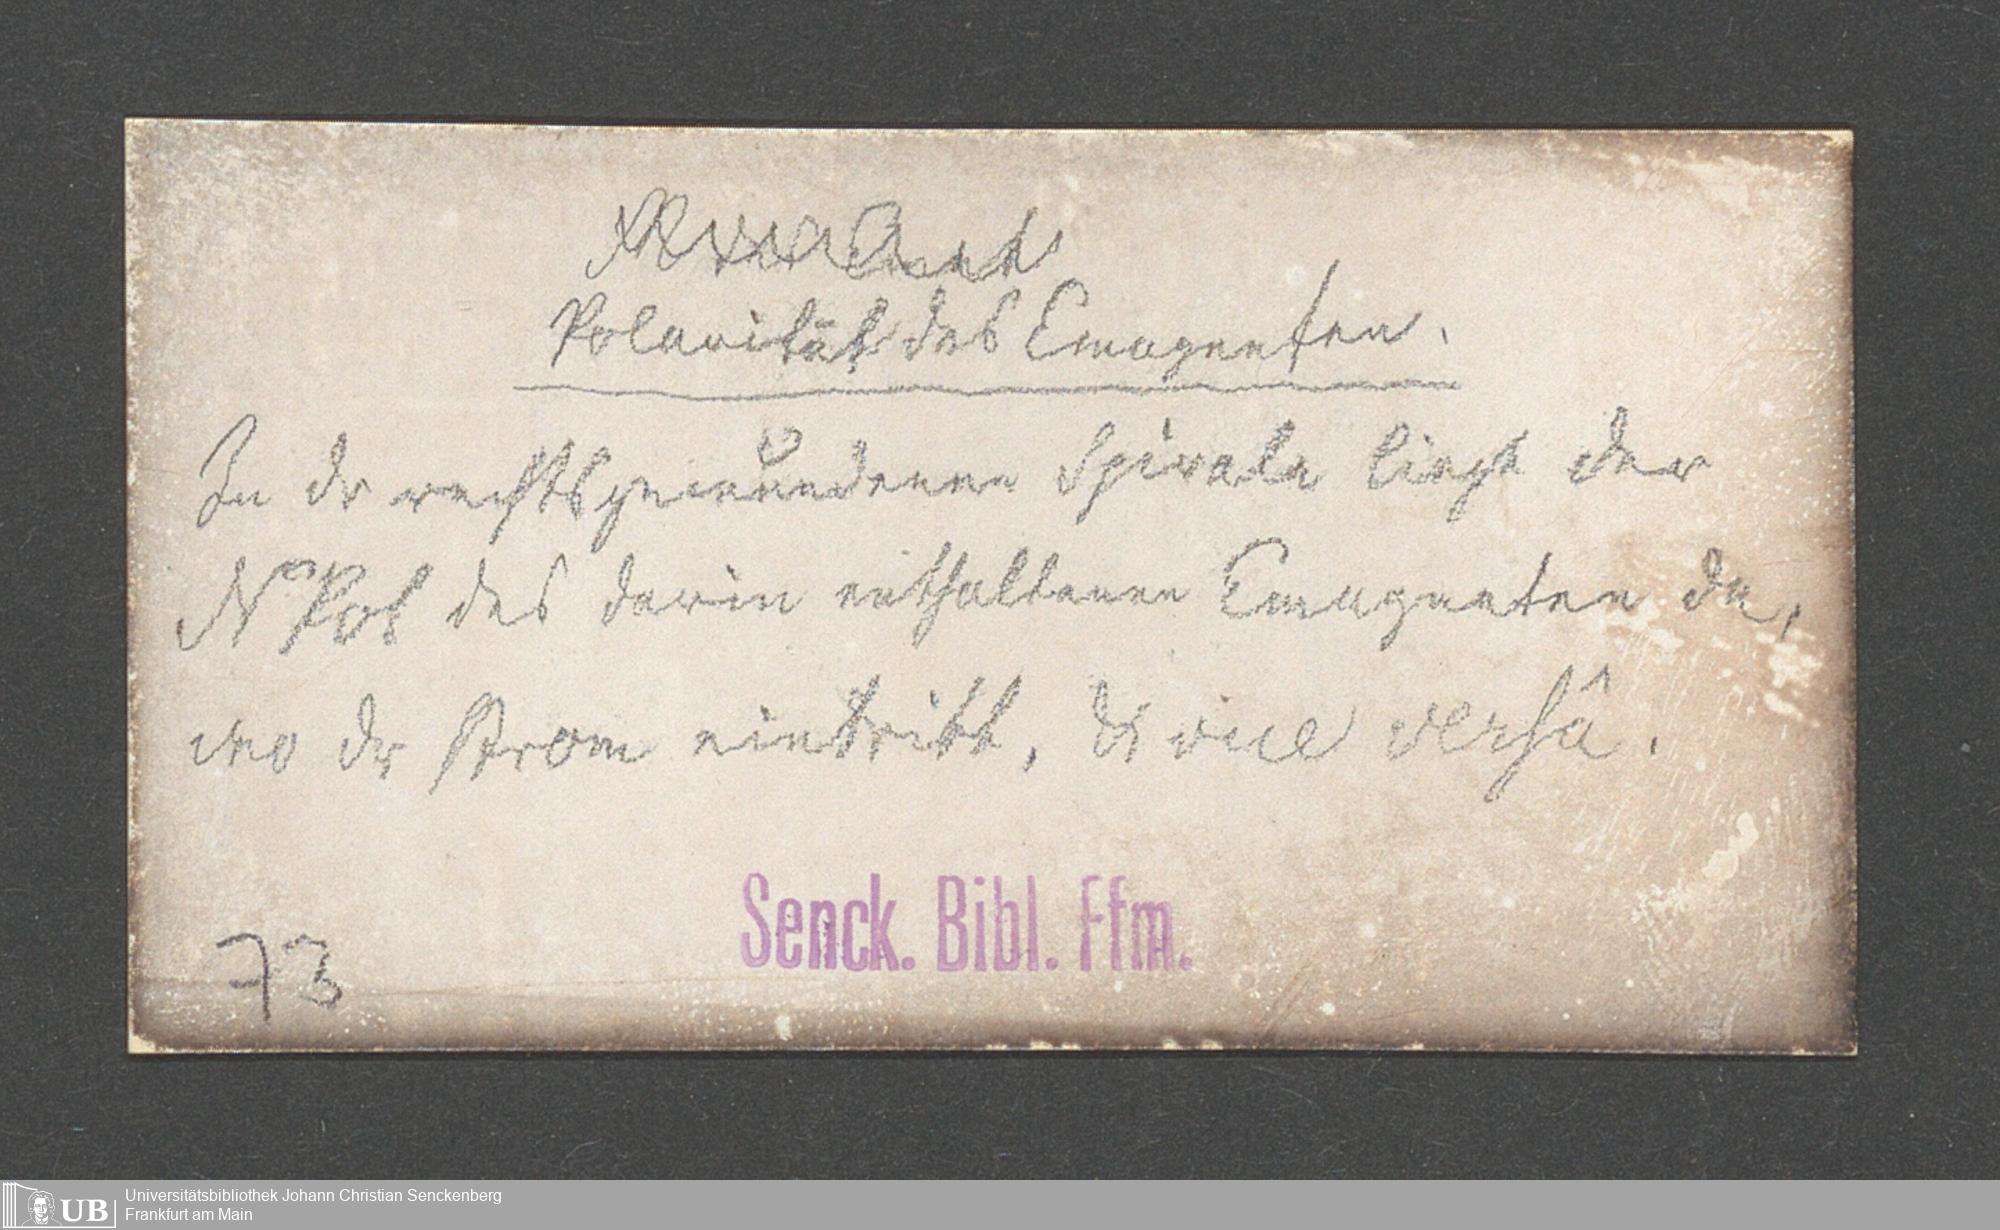 Polarität des Emagneten.
In dr rechtsgewundenen Spirale liegt der
N Pol des darin enthaltenen Emagneten da,
wo dr Strom eintritt, & vice versâ.
Senck. Bibl. Ffm.
73
UB
Universitätsbibliothek Johann Christian Senckenberg
Frankfurt am Main